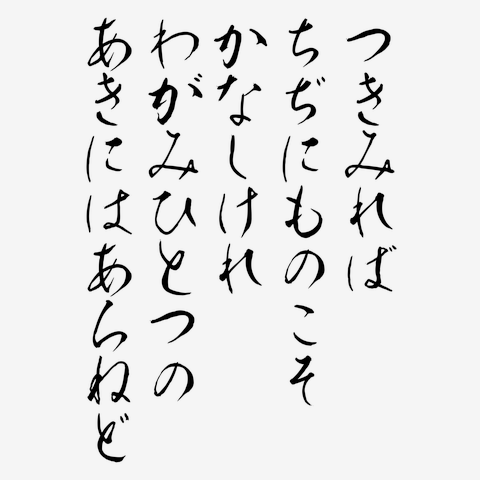 つきみれば
ちぢにものこそ
かなしけれ
わがみひとつの
あきにはあらねど